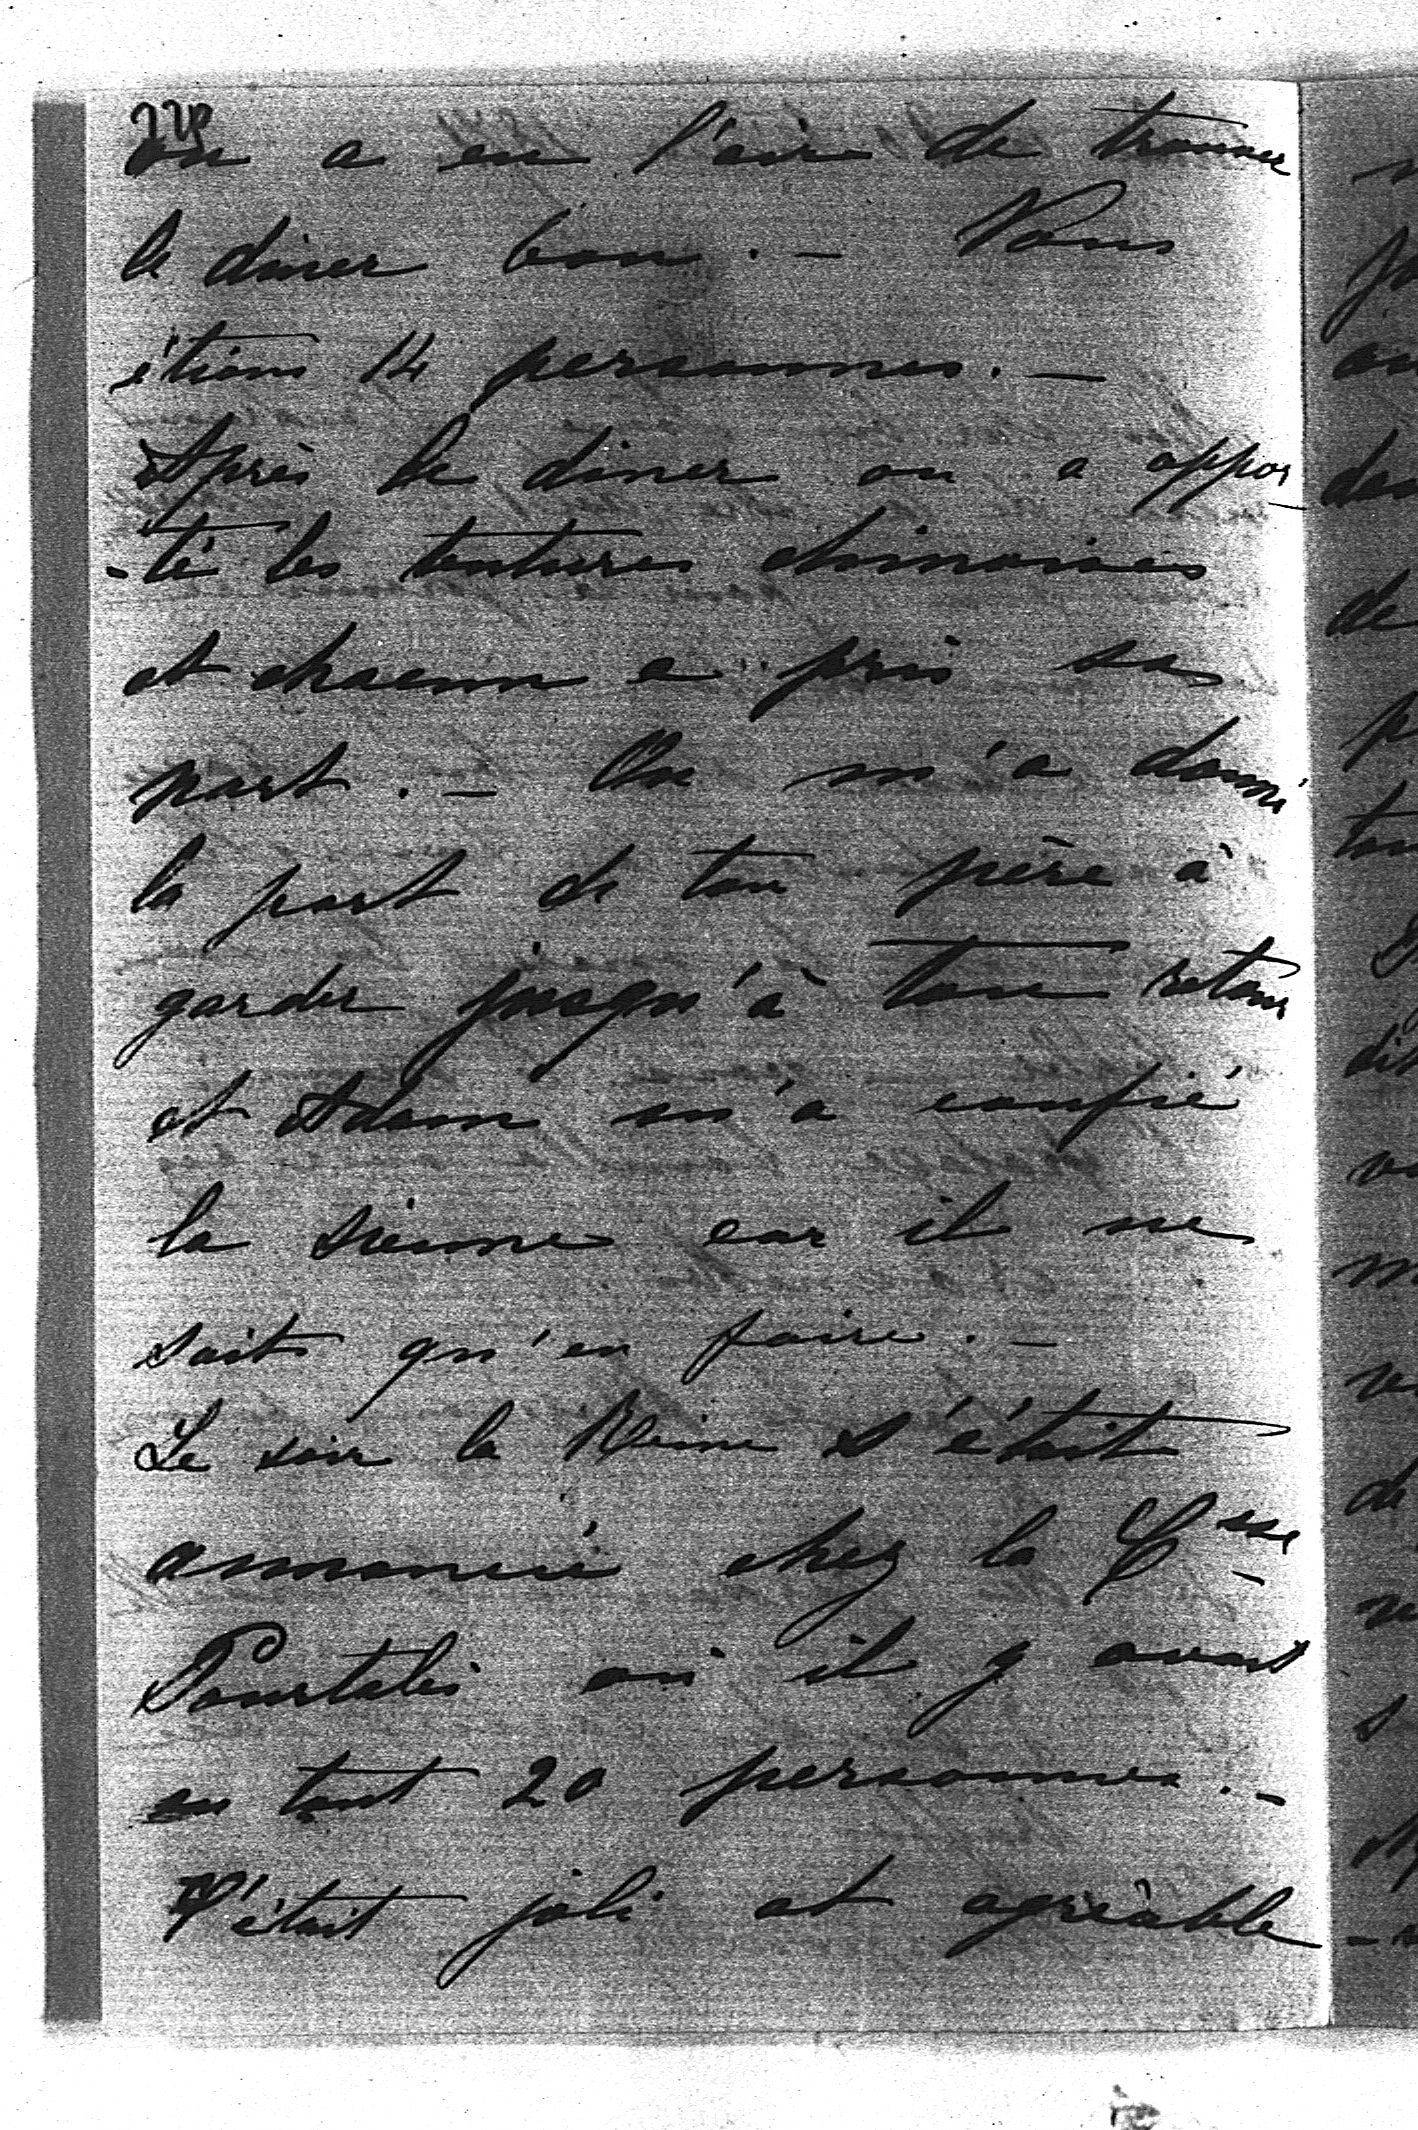 on a eu l'air de trouver
le diner bon. — Nous
étions 14 personnes. —
Après le diner on a appor
-té les tentures chinoises
et chacun a pris sa
part. — On m'a donné
la part de ton père à
garder jusqu'à ton retour
et Adam m'a confié
la sienne car il ne
sait qu'en faire. —
Le soir la Reine s'était
annoncée chez la Csse
Pourtalès où il y avait
en tout 20 personnes. —
C'était joli et agréable